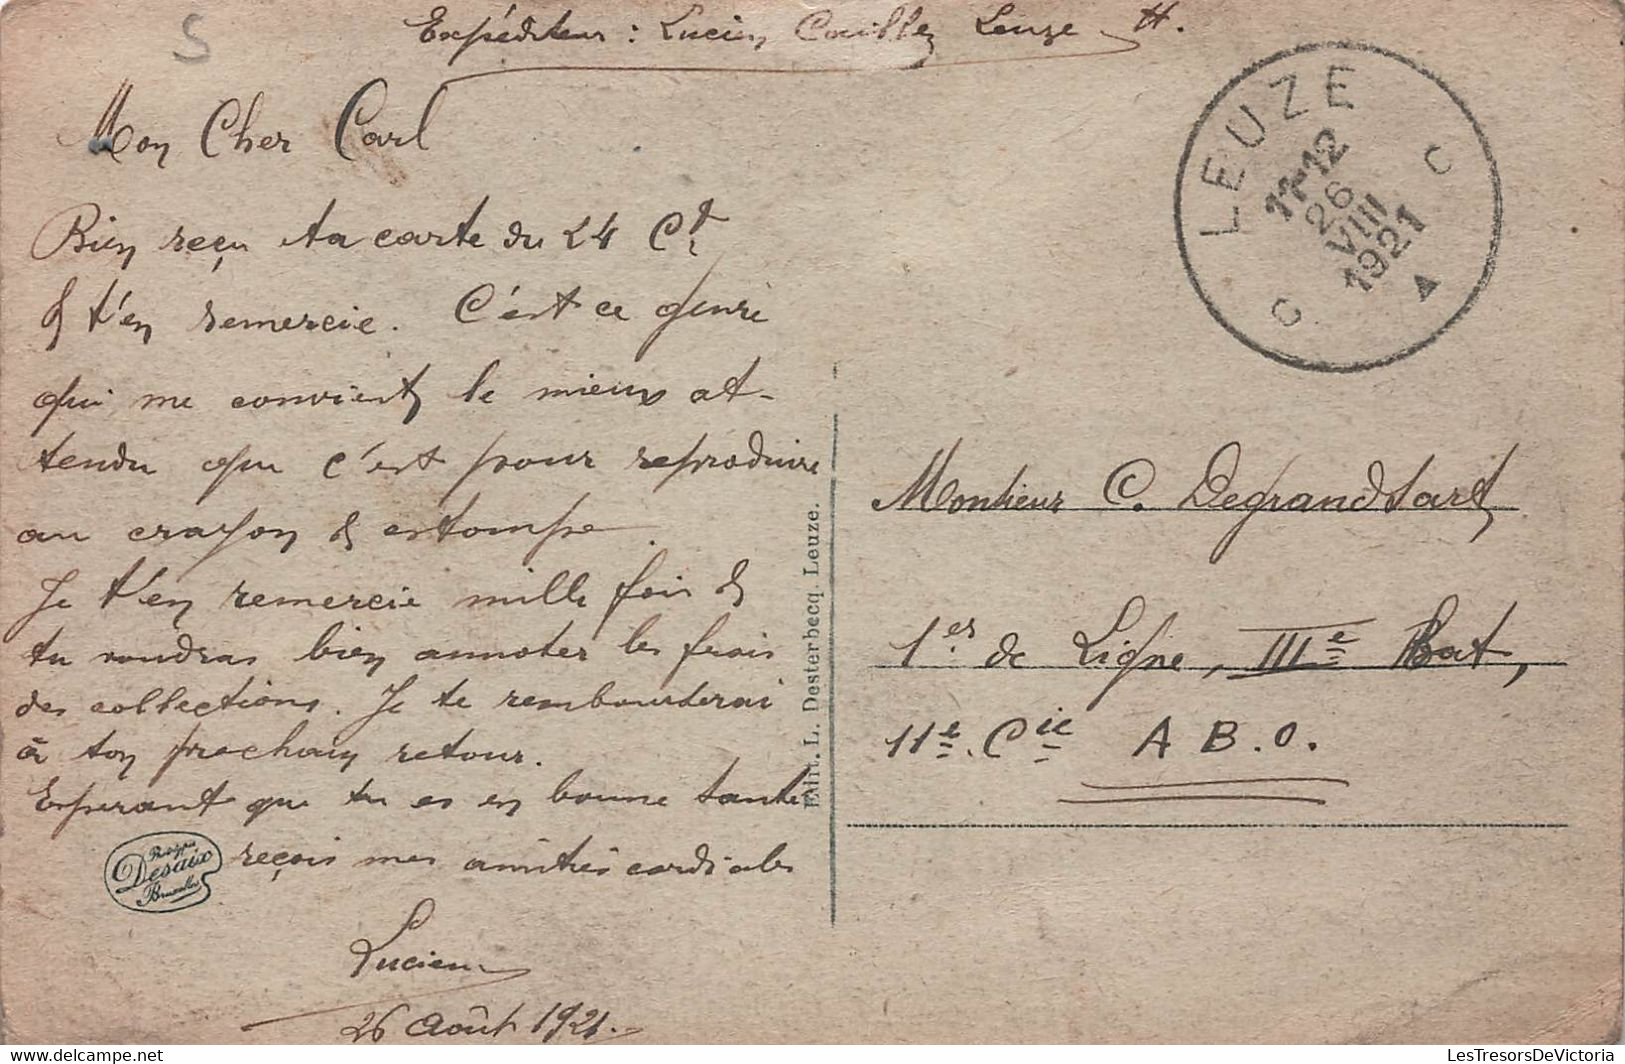 S
Expéditeur : Lucien Leuze H.
Mon Cher Carl
Bien reçu ta carte du 24 Ct
& t'en remercie. C'est ce genre
qui me convient le mieux at-
tendu que c'est pour reproduire
au crayon & estompe.
Je t'en remercie mille fois &
tu voudras bien annoter les frais
des collections. Je te rembourserai
à ton prochain retour.
Esperant que tu es en bonne santé
reçois mes amitiés cordiales
Lucien
26 Août 1921.
Phototypie
Desaix
Bruxelles
Edit. L. Desterbecq. Leuze.
LEUZE
11-12
26
VIII
1921
C C
Monsieur C. Degrandsart
1er de Ligne, IIIe Bat,
11e. Cie A B.O.
LesTresorsDeVictoria